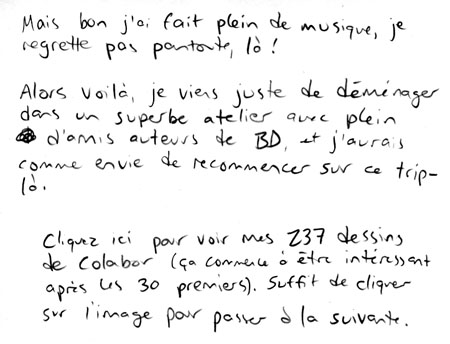 Mais bon j'ai fait plein de musique, je
regrette pas pantoute, là !
Alors voilà, je viens juste de déménager
dans un superbe atelier avec plein
d'amis auteurs de BD, et j'aurais
comme envie de recommencer sur ce trip-
là.
Cliquez ici pour voir mes 237 dessins
de Colabor (ça commence à être intéressant
après les 30 premiers). Suffit de cliquer
sur l'image pour passer à la suivante.